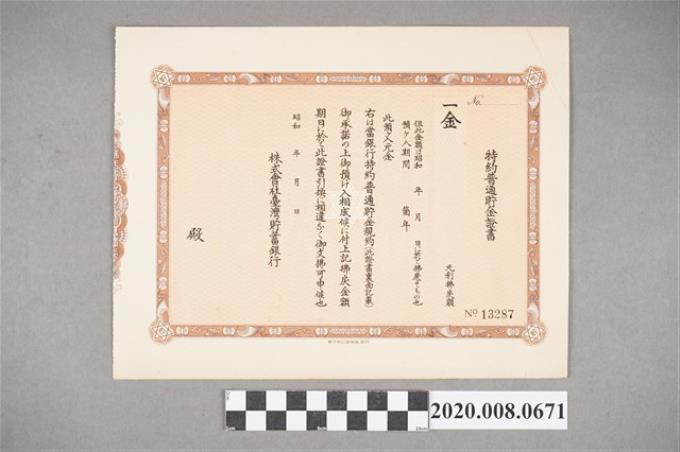 No.
特約普通貯金證書
元利拂戾額
一金
但此金額ハ昭和 年 月 日ニ於テ拂戾スモノ也
預ケ入期間 箇年
此預ケ入元金
右は當銀行特約普通貯金規約(此證書裏面記載)
御承諾の上御預け入相成候に付上記拂戾金額
期日に於て此證書引換に相違なく御支拂可申候也
昭和 年 月 日
株式會社臺灣貯蓄銀行
殿
No 13287
2020.008.0671